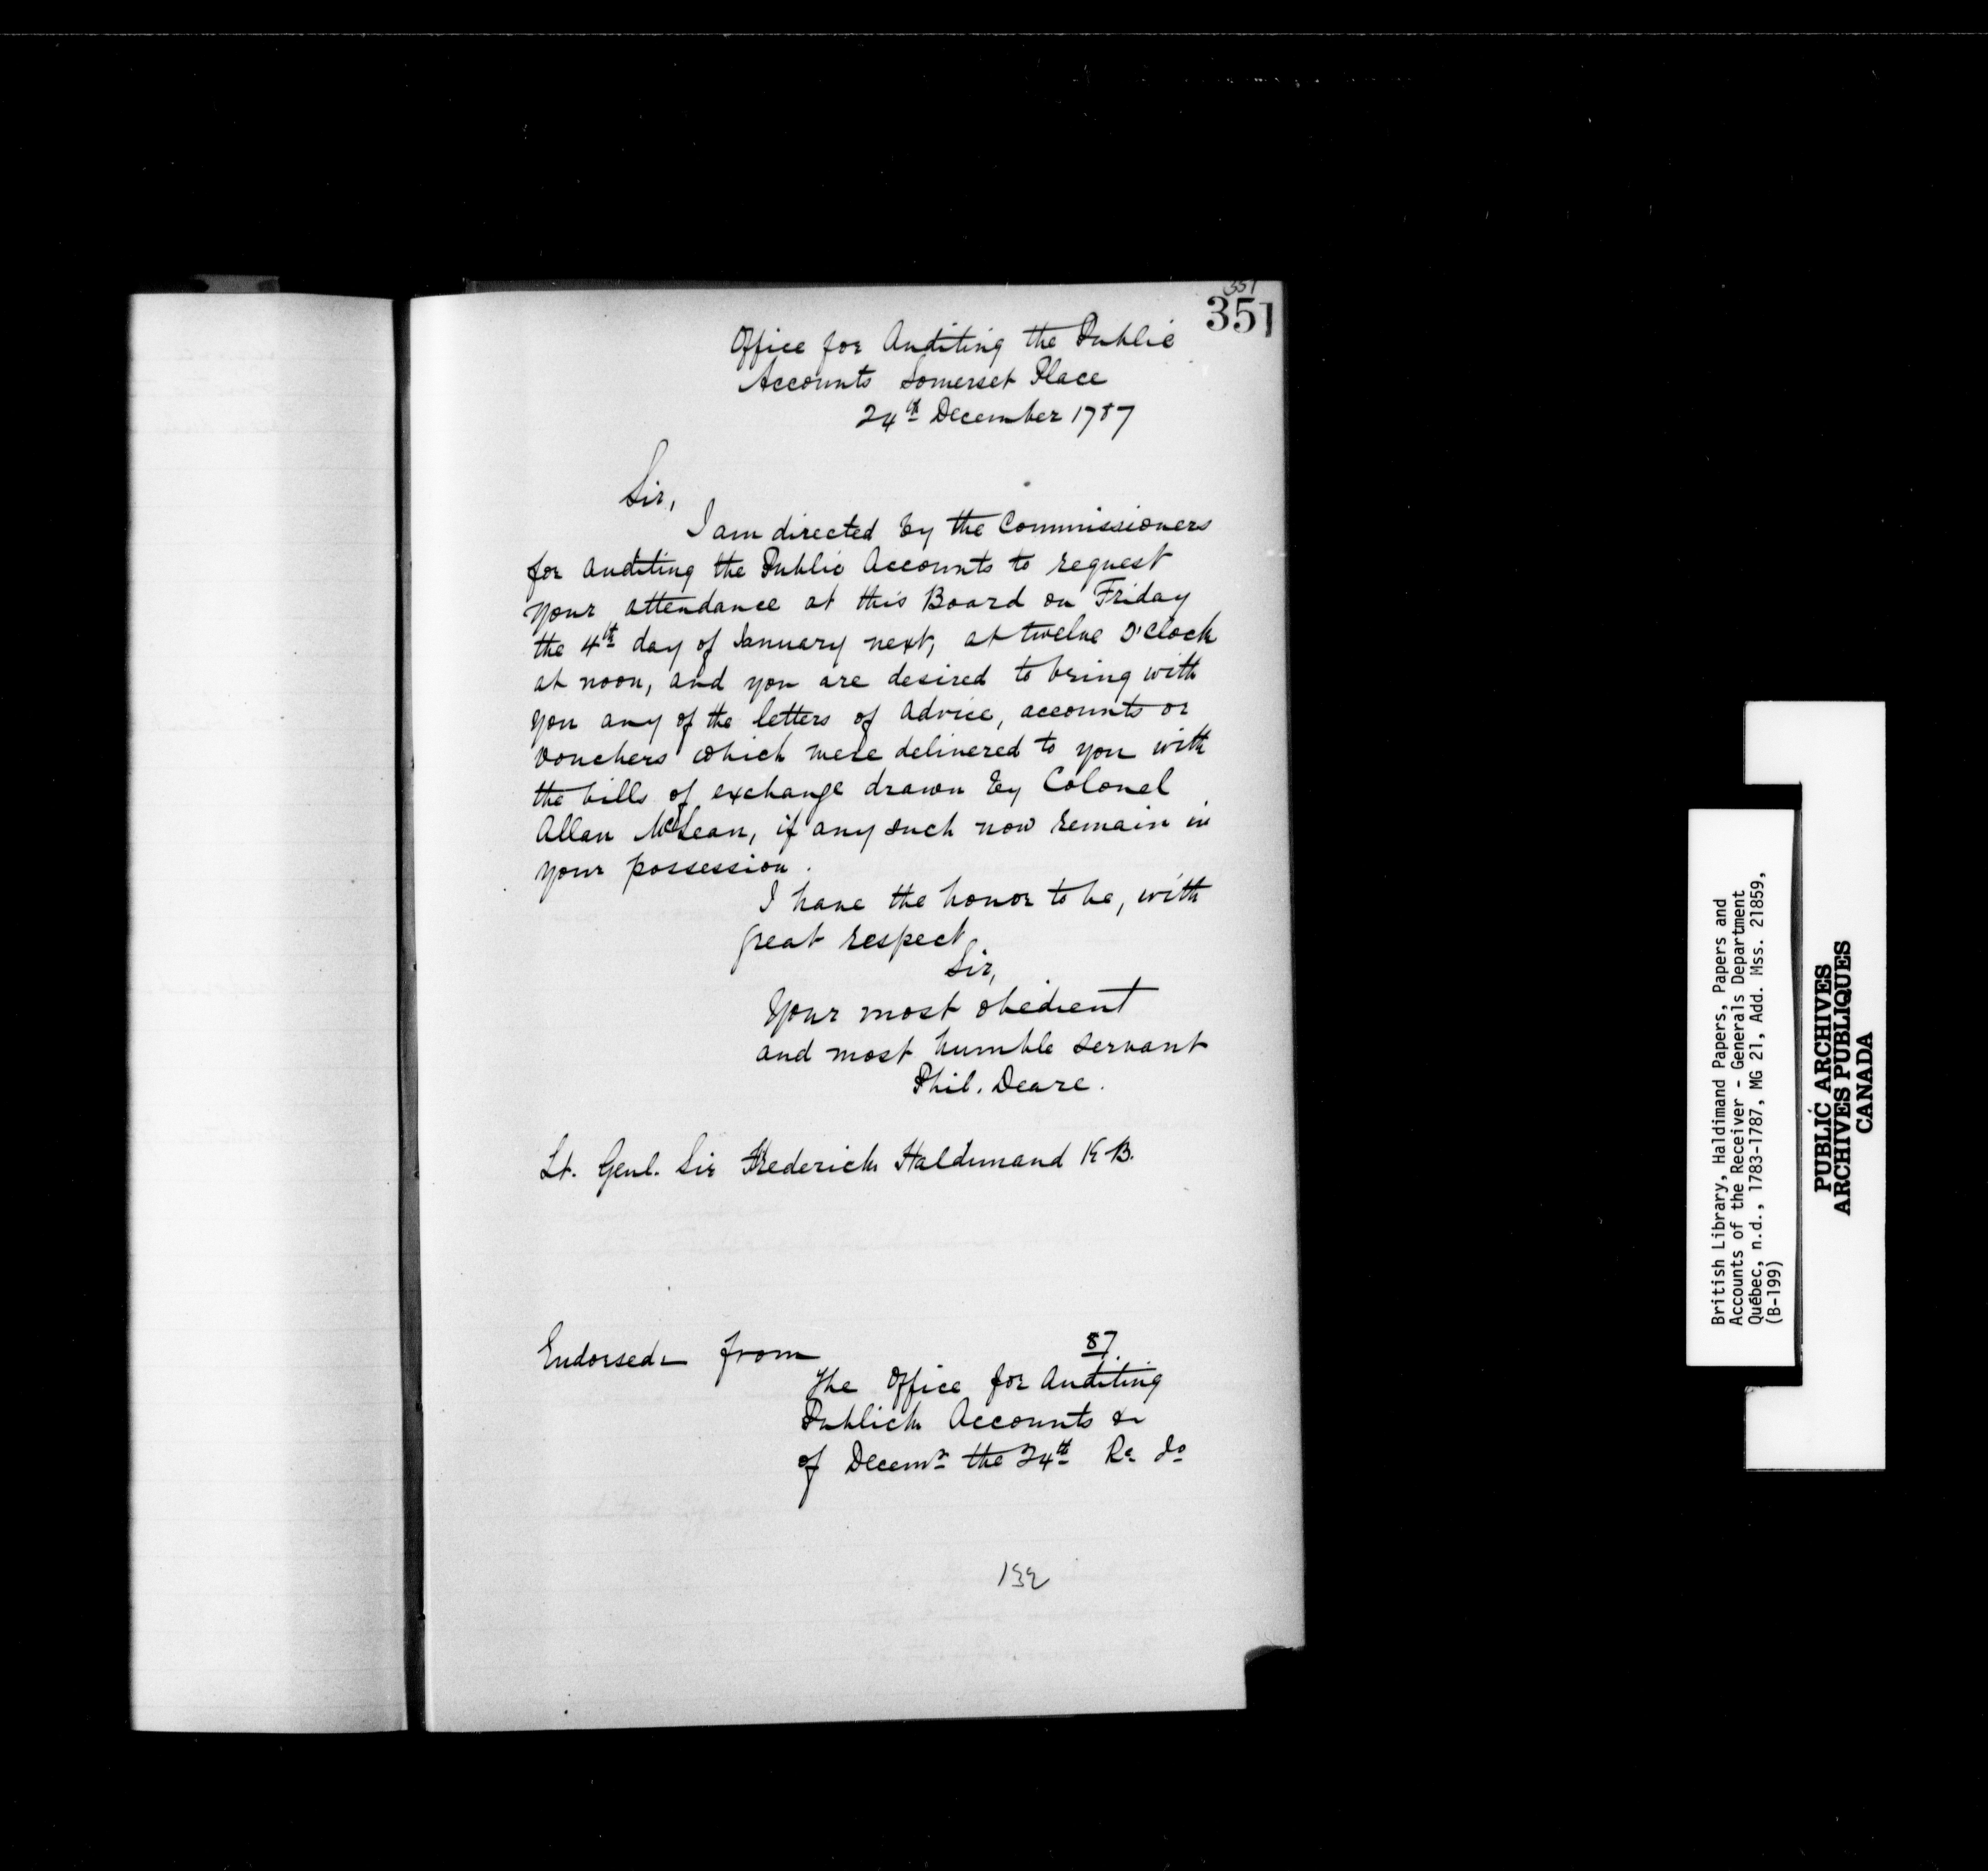 351
351
Office for Auditing the Public
Accounts Somerset Place
24th December 1787
Sir,
I am directed by the Commissioners
for auditing the Public Accounts to request
your attendance at this Board on Friday
the 4th day of January next, at twelve O'Clock
at noon, and you are desired to bring with
you any of the letters of advice, accounts or
vouchers which were delivered to you with
the bills of exchange drawn by Colonel
Allan McLean, if any such now remain in
your possession.
I have the honor to be, with
great respect
Sir,
Your most obedient
and most humble servant
Phil. Deare.
Lt. Genl. Sir Frederick Haldimand K.B.
Endorsed:- from 87.
The Office for Auditing
Publick Accounts &c
of Decemr the 24th Rc do
132
British Library, Haldimand Papers, Papers and
Accounts of the Receiver - Generals Department
Québec, n.d., 1783-1787, MG 21, Add. Mss. 21859,
(B-199)
PUBLIC ARCHIVES
ARCHIVES PUBLIQUES
CANADA